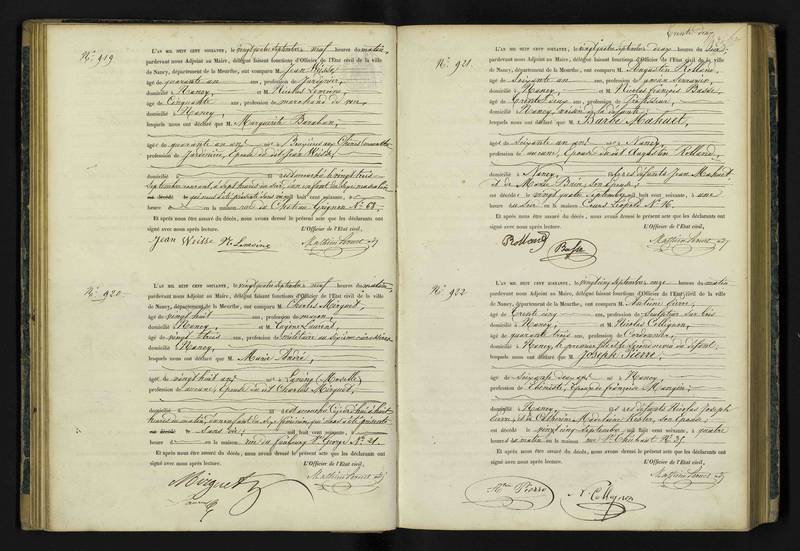 N.º 919
L'AN MIL HUIT CENT SOIXANTE, le vingtquatre septembre neuf heures du matin
pardevant nous Adjoint au Maire, délégué faisant fonctions d'Officier de l'Etat civil de la ville
de Nancy, département de la Meurthe, ont comparu M. Jean Weisse,
âgé de quarante un ans, profession de Jardinier,
domicilié à Nancy, et M. Nicolas Lemoine
âgé de Cinquante ans, profession de marchand de
domicilié à Nancy,
lesquels nous ont déclaré que M. Marguerite
âgée de quarante un ans, née à
profession de Jardinière, Epouse du dit Jean Weisse,
est accouchée le vingt trois
Septembre courant, à sept heures du soir, d'un enfant du sexe masculin
qui nous a été présenté sans vie mil huit cent soixante, à
heure en la maison rue de Château Grignon N.º 68.
Et après nous être assuré du décès, nous avons dressé le présent acte que les déclarants ont
signé avec nous après lecture. L'Officier de l'Etat civil,
Jean Weisse Ns Lemoine
N.º 920
L'AN MIL HUIT CENT SOIXANTE, le vingtquatre septembre neuf heures du matin,
pardevant nous Adjoint au Maire, délégué faisant fonctions d'Officier de l'Etat civil de la ville
de Nancy, département de la Meurthe, ont comparu M. Charles Mirguet,
âgé de vingt huit ans, profession de maçon,
domicilié à Nancy, et M. Eugène Laurent,
âgé de vingt trois ans, profession de militaire au
domicilié à Nancy,
lesquels nous ont déclaré que M. Marie André,
âgée de vingt huit ans née à (Moselle)
profession de aucune, Epouse du dit Charles Mirguet,
domicilié à est accouchée
heures du matin, d'un enfant du sexe féminin, qui nous a été présenté
Sans vie, mil huit cent soixante, à
heure en la maison rue du faubourg St. George N.º 21.
Et après nous être assuré du décès, nous avons dressé le présent acte que les déclarants ont
signé avec nous après lecture. L'Officier de l'Etat civil,
Mirguet
N.º 921.
L'AN MIL HUIT CENT SOIXANTE, le vingtquatre septembre deux heures du soir,
pardevant nous Adjoint au Maire, délégué faisant fonctions d'Officier de l'Etat civil de la ville
de Nancy, département de la Meurthe, ont comparu M. Augustin Rolland,
âgé de Soixante un ans, profession de ancien
domicilié à Nancy, et M. Nicolas François Basse,
âgé de Trente deux ans, profession de Professeur,
domicilié à Nancy, voisin de la défunte,
lesquels nous ont déclaré que M. Barbe Mahuet,
âgée de Soixante un ans, née à Nancy,
profession de aucune, Epouse du dit Augustin Rolland,
domicilié à Nancy, et des défunts Jean Mahuet
et de Marie son Epouse,
est décédée, le vingt quatre Septembre mil huit cent soixante, à une
heure du Soir en la maison Cours Léopold N.º 16.
Et après nous être assuré du décès, nous avons dressé le présent acte que les déclarants ont
signé avec nous après lecture. L'Officier de l'Etat civil,
Rolland Basse
N.º 922
L'AN MIL HUIT CENT SOIXANTE, le vingtcinq septembre onze heures du matin
pardevant nous Adjoint au Maire, délégué faisant fonctions d'Officier de l'Etat civil de la ville
de Nancy, département de la Meurthe, ont comparu M. Antoine Pierre,
âgé de Trente cinq ans, profession de Sculpteur sur bois
domicilié à Nancy, et M. Nicolas Collignon,
âgé de quarante trois ans, profession de Cordonnier,
domicilié à Nancy, le premier fils et le second voisin du défunt,
lesquels nous ont déclaré que M. Joseph Pierre,
âgé de Soixante ans, né à Nancy,
profession de Ebéniste, Epoux de Françoise Mangin;
domicilié à Nancy, et des défunts Nicolas Joseph
Pierre, et de Catherine Madeleine son Epouse;
est décédé, le vingtcinq Septembre mil huit cent soixante, à quatre
heures du matin en la maison rue St. N.º 35.
Et après nous être assuré du décès, nous avons dressé le présent acte que les déclarants ont
signé avec nous après lecture. L'Officier de l'Etat civil,
Pierre N. Collignon